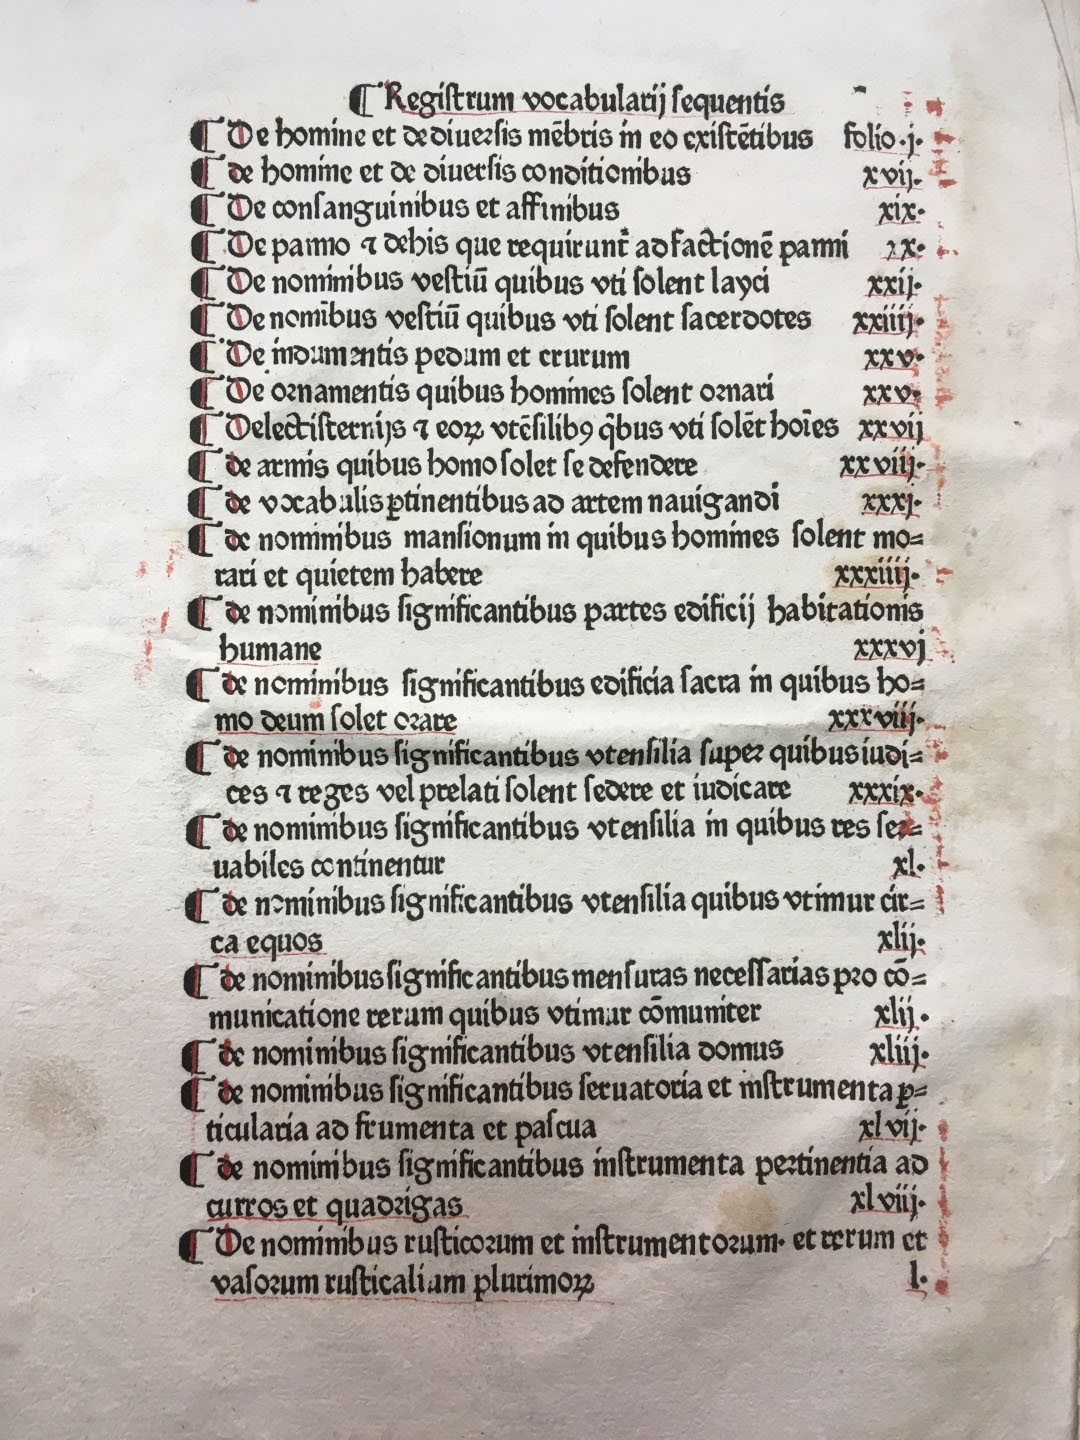 ¶ Regiſtrum vocabularij ſequentis
¶ De homine et de diuerſis mēbris in eo exiſtētibus folio .j.
¶ de homine et de diuerſis conditionibus xvij.
¶ De conſanguinibus et affinibus xix.
¶ De panno ⁊ dehis que requirunt᷑ ad factionē panni xx.
¶ De nominibus veſtiū quibus vti ſolent layci xxij.
¶ De nomībus veſtiū quibus vti ſolent ſacerdotes xxiiij.
¶ De indumentis pedum et crurum xxv.
¶ De ornamentis quibus homines ſolent ornari xxv.
¶ Delectiſternijs ⁊ eoꝝ vtēſilibꝯ q̄bus vti ſolēt hoīes xxvij
¶ de armis quibus homo ſolet ſe defendere xxviij.
¶ de vocabulis ꝑtinentibus ad artem nauigandi xxxj.
¶ de nominibus manſionum in quibus homines ſolent mo=
rari et quietem habere xxxiiij.
¶ de nominibus ſignificantibus partes edificij habitationis
humane xxxvj
¶ de nominibus ſignificantibus edificia ſacra in quibus ho=
mo deum ſolet orare xxxviij.
¶ de nominibus ſignificantibus vtenſilia ſuper quibus iudi=
ces ⁊ reges vel prelati ſolent ſedere et iudicare xxxix.
¶ de nominibus ſignificantibus vtenſilia in quibus res ſer=
uabiles continentur xl.
¶ de nominibus ſignificantibus vtenſilia quibus vtimur cir=
ca equos xlij.
¶ de nominibus ſignificantibus menſuras neceſſarias pro cō=
municatione rerum quibus vtimur cōmuniter xlij.
¶ de nominibus ſignificantibus vtenſilia domus xliij.
¶ de nominibus ſignificantibus ſeruatoria et inſtrumenta ꝑ=
ticularia ad frumenta et paſcua xlvij.
¶ de nominibus ſignificantibus inſtrumenta pertinentia ad
curros et quadrigas xlviij.
¶ De nominibus ruſticorum et inſtrumentorum. et rerum et
vaſorum ruſticalium plurimoꝝ l.